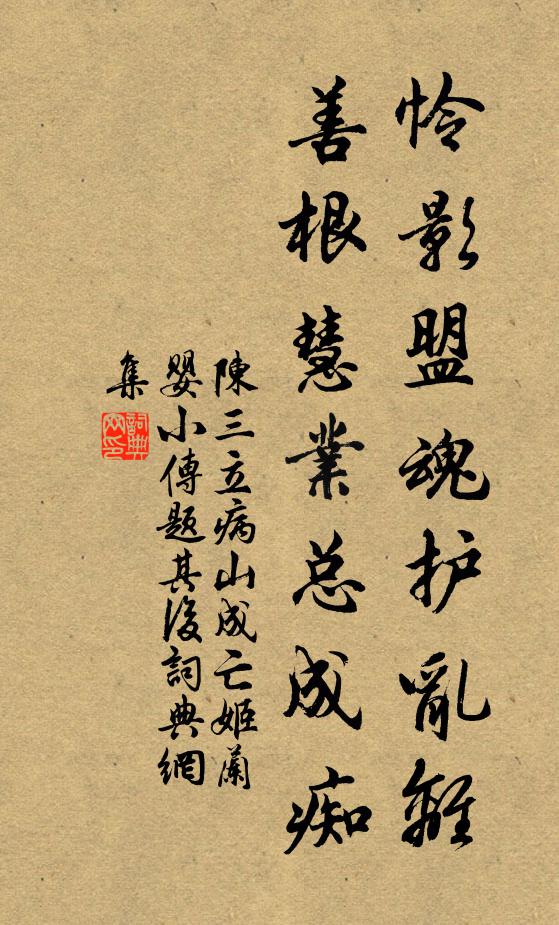 怜影盟魂护亂離
善根慧業总成痴
陳三立病山成亡姬蘭
嬰小傳題其後詞典網
集
詞典網印